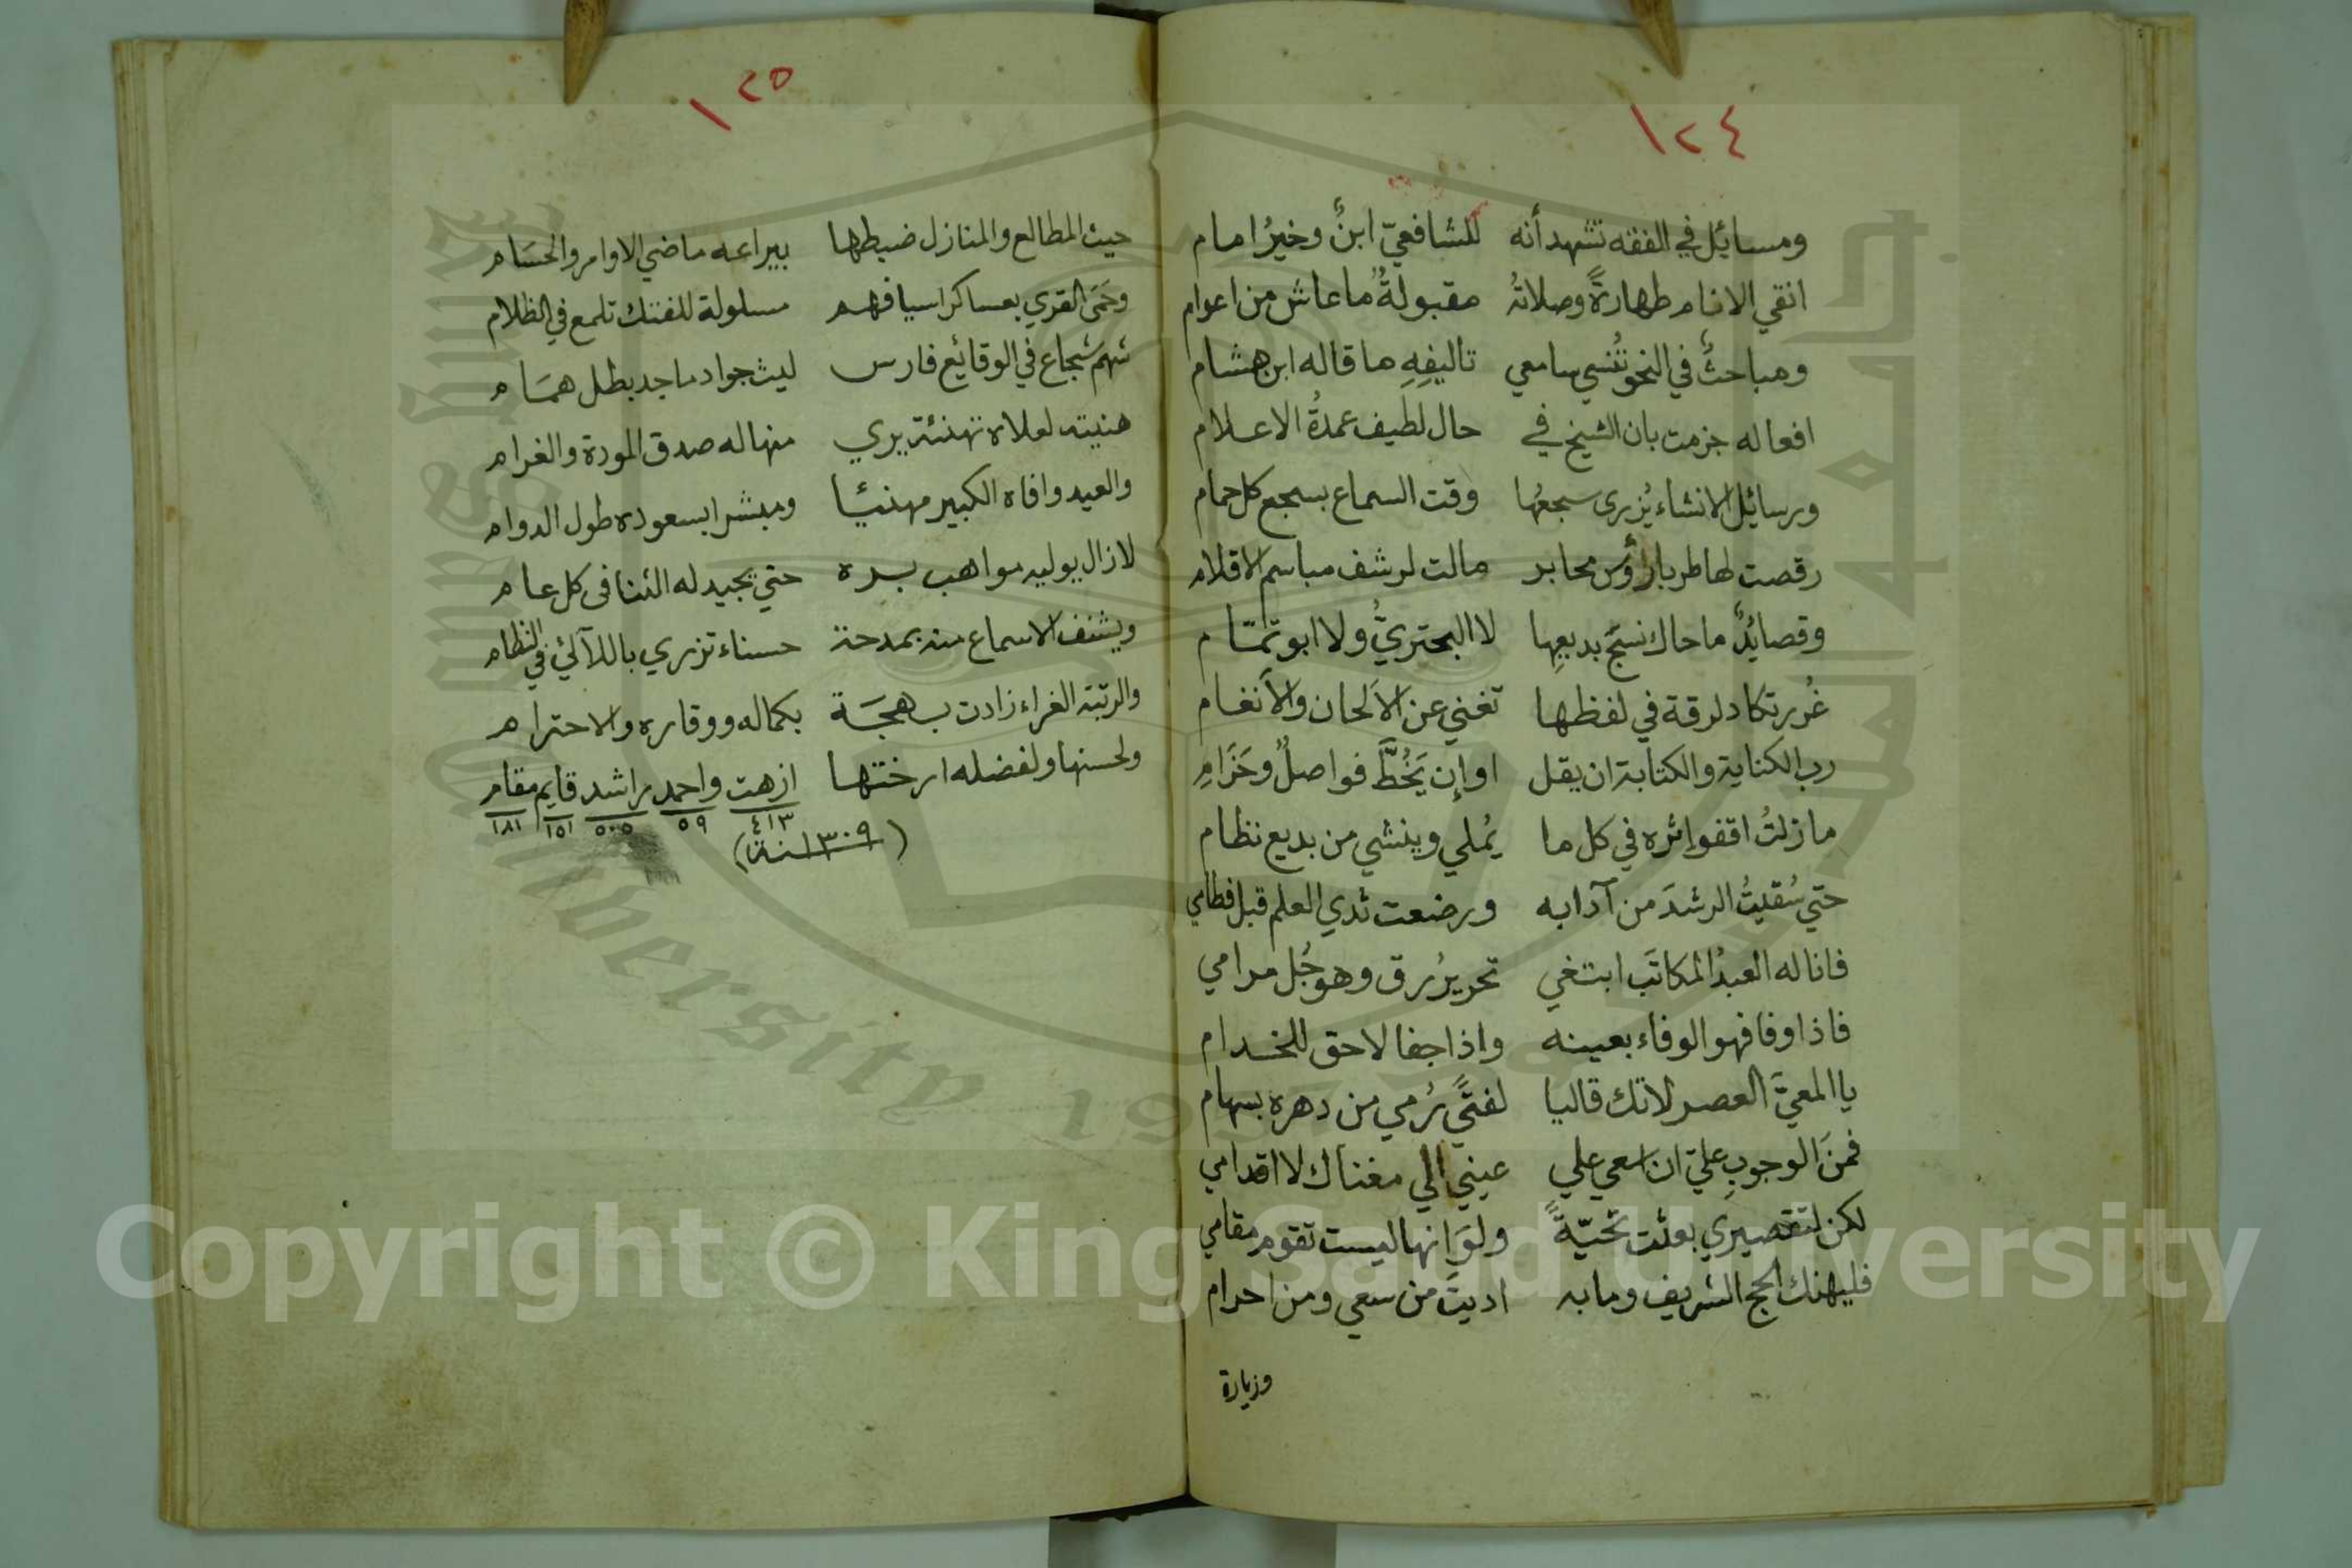 ١٢٤
ومسائل في الفقه تشهد أنه للشافعيّ ابنٌ وخيرُ امام
انقي الانام طهارةً وصلاتهُ مقبولةٌ ما عاش من اعوام
ومباحثٌ في النحو تُنسي سامعي تاليفِهِ ما قاله ابن هشام
افعاله جزمت بان الشيخ في حال لطيف عمدةُ الاعلام
ورسائل الانشاء يُزرى سجعُها وقت السماع بسجع كل حمام
رقصت لها طربا رؤس محابر مالت لرشف مباسم الاقلام
وقصائدٌ ما حاك نسجَ بديعِها لا البحتريُّ ولا ابو تمّام
غُرر تكاد لرقة في لفظها تغني عن الاَلحان والاَنغام
رب الكناية والكتابة ان يقل او اِن يَخُطَّ فواصلٌ وحَزَامِ
ما زلتُ اقفو اثره في كل ما يُملي وينشي من بديع نظام
حتي سُقيتُ الرشدَ من آدابه ورضعت ثدي العلم قبل فطامي
فانا له العبدُ المكاتَب ابتغي تحريرُ رق وهو جُل مرامي
فاذا وفا فهو الوفاء بعينه واذا جفا لا حق للخدام
يا المعيَّ العصر لا تك قاليا لفتًي رُمي من دهره بسهام
فمنَ الوجوبِ عليّ ان اسعي علي عيني الي مغناك لا اقدامي
لكن لتقصيري بعثت تحيّةً ولوَ انها ليست تقوم مقامي
فليهنك الحج الشريف وما به اديتَ من سعي ومن احرام
وزيارة
١٢٥
حيث المطالع والمنازل ضبطها بيراعه ماضي الاوامر والحسَام
وحَمَى القري بعساكر اسيافهم مسلولة للفتك تلمع في الظلام
شهم شجاع في الوقائع فارس ليث جواد ماجد بطل همَام
هنيته لعلاه تهنئة يري منها له صدق المودة والغرام
والعيد وافاه الكبير مهنيًا ومبشرا بسعوده طول الدوام
لا زال يوليه مواهب بره حتي يجيد له الثنا في كل عام
ويشنف الاسماع منه بمدحة حسناء تزري باللآلئ في النظام
والرتبة الغراء زادت بهجَة بكماله ووقاره والاحترام
ولحسنها ولفضله ارختها ازهت واحمد راشد قايم مقام
٤١٣ ٥٩ ٥٠٥ ١٥١ ١٨١
(سنة ١٣٠٩)
Copyright © King Saud University
King Saud University 1957